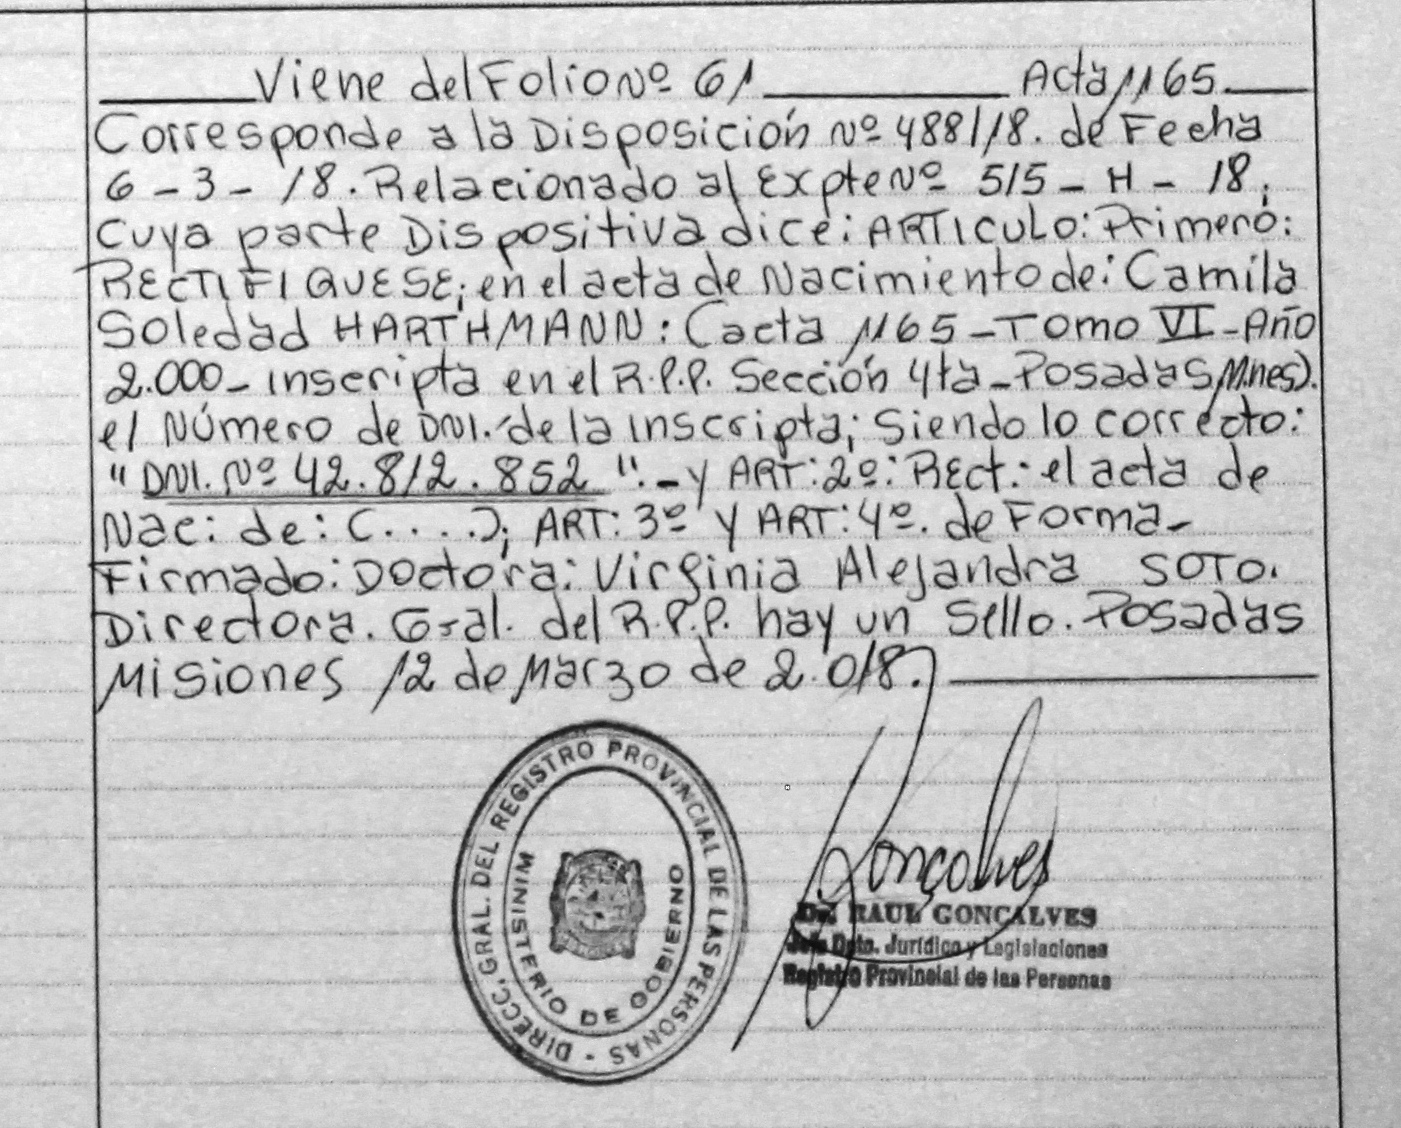 Viene del Folio Nº 61 Acta 1165
Corresponde a la Disposición Nº 488/18. de Fecha
6-3-18. Relacionado al Expte Nº 515-H-18.
Cuya parte Dispositiva dice: ARTICULO: Primero:
RECTIFIQUESE; en el acta de Nacimiento de: Camila
Soledad HARTHMANN: (acta 1165-Tomo VI-Año
2.000- inscripta en el R.P.P. Sección 4ta-Posadas, Mnes).
el Número de DNI. de la inscripta; Siendo lo correcto:
"DNI. Nº 42.812.852".- y ART: 2º: Rect.: el acta de
Nac: de: (....); ART: 3º y ART: 4º. de Forma-
Firmado: Doctora: Virginia Alejandra SOTO.
Directora. Gral. del R.P.P. hay un Sello. Posadas
Misiones 12 de Marzo de 2.018.
DIRECC. GRAL. DEL REGISTRO PROVINCIAL DE LAS PERSONAS -
MINISTERIO DE GOBIERNO
Goncalves
Dr. RAUL GONCALVES
Jefe Dpto. Jurídico y Legislaciones
Registro Provincial de las Personas